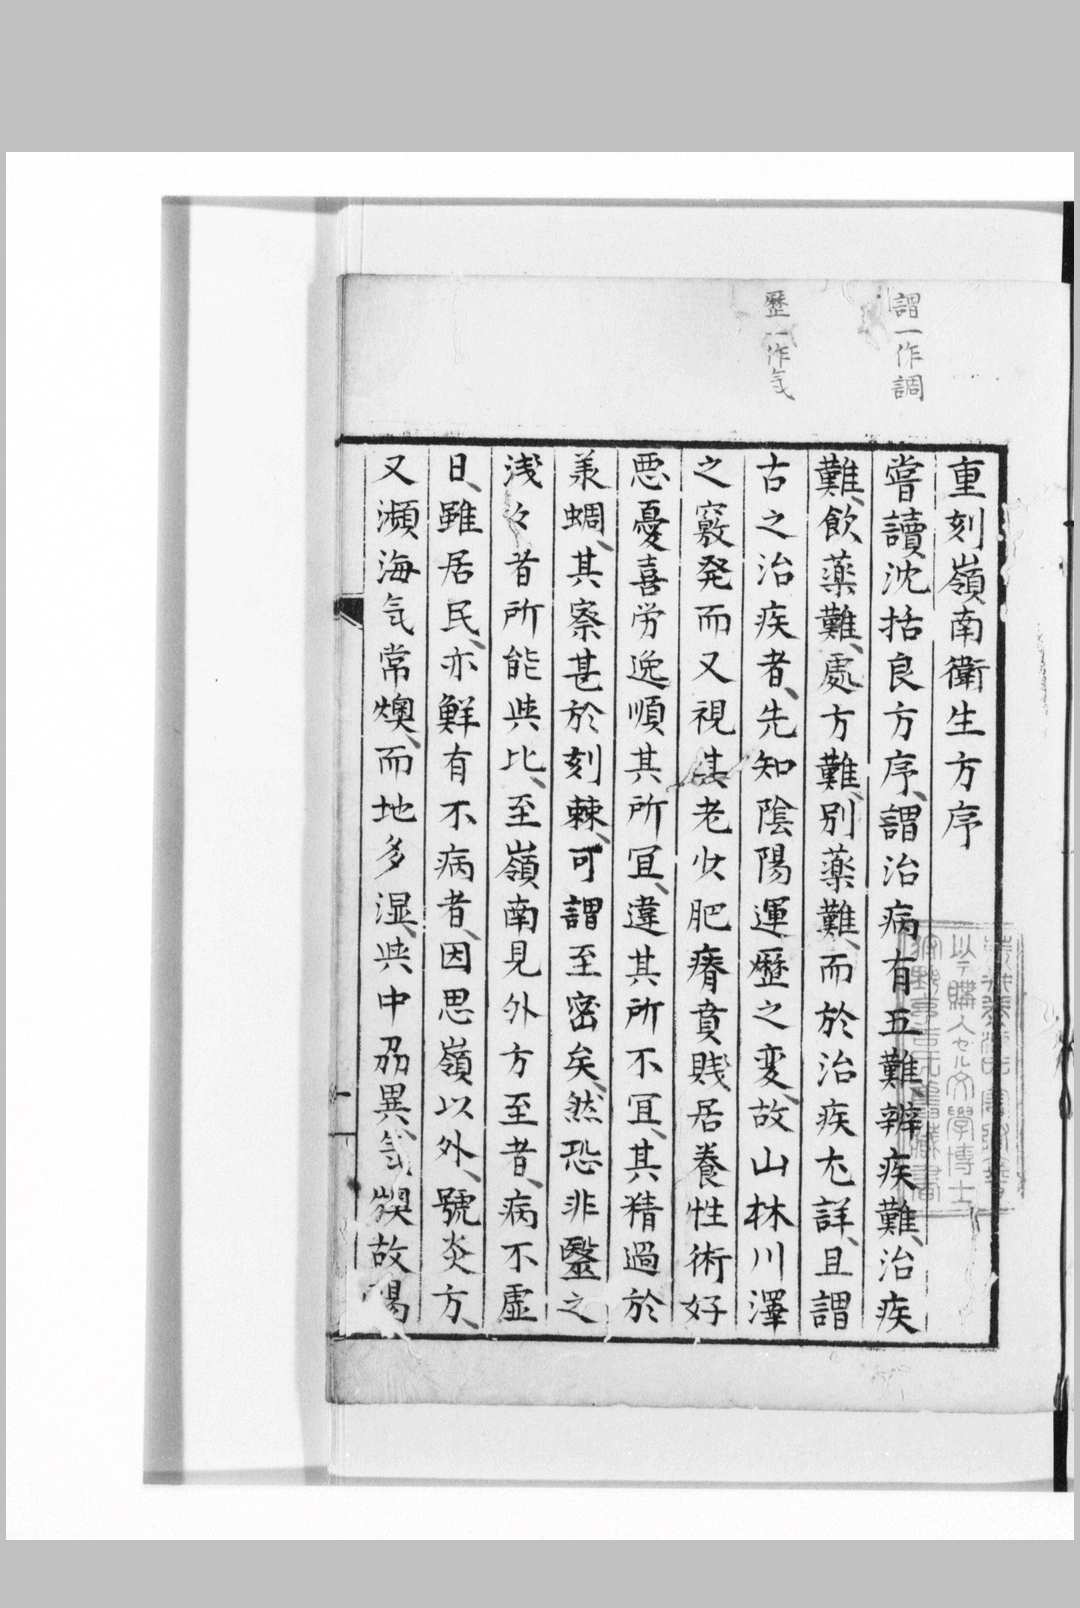 謂一作調
歷一作氣
重刻嶺南衛生方序
嘗讀沈括良方序、謂治病有五難、辨疾難、治疾
難、飲薬難、處方難、別薬難、而於治疾尢詳、且謂
古之治疾者、先知陰陽運歷之変、故山林川澤
之竅発而又視其老少肥瘠貴賎居養性術好
悪憂喜労逸順其所冝、違其所不冝、其精過於
承蜩、其察甚於刻棘、可謂至密矣、然恐非醫之
浅々者所能與比、至嶺南見外方至者、病不虚
日、雖居民、亦鮮有不病者、因思嶺以外、號炎方、
又瀕海気常燠、而地多湿、與中刕異、気燠故陽
以テ購入セル文學博士
狩野亨吉氏舊藏書